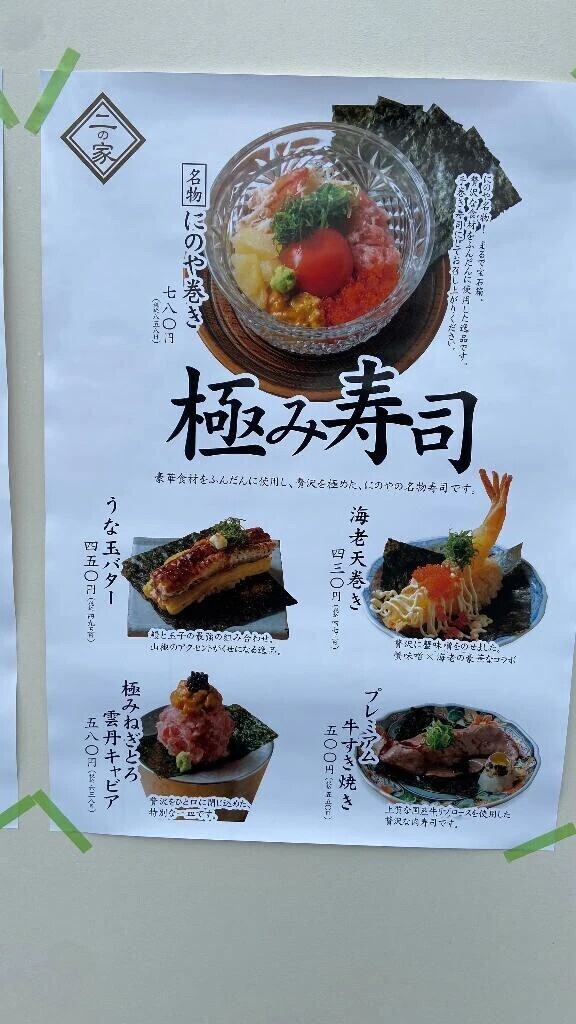 二の家
名物
にのや巻き
七八〇円
(税込八五八円)
にのや名物!まるで宝石箱。
贅沢な食材をふんだんに使用した逸品です。
手巻き寿司にしてお召し上がりください。
極み寿司
豪華食材をふんだんに使用し、贅沢を極めた、にのやの名物寿司です。
うな玉バター
四五〇円(税込四九五円)
鰻と玉子の最強の組み合わせ。
山椒のアクセントがくせになる逸品。
海老天巻き
四三〇円(税込四七三円)
贅沢に蟹味噌をのせました。
蟹味噌×海老の豪華なコラボ
極みねぎとろ
雲丹キャビア
五八〇円(税込六三八円)
贅沢をひと口に閉じ込めた、
特別な一皿です。
プレミアム
牛すき焼き
五〇〇円(税込五五〇円)
上質な国産牛リブロースを使用した
贅沢な肉寿司です。